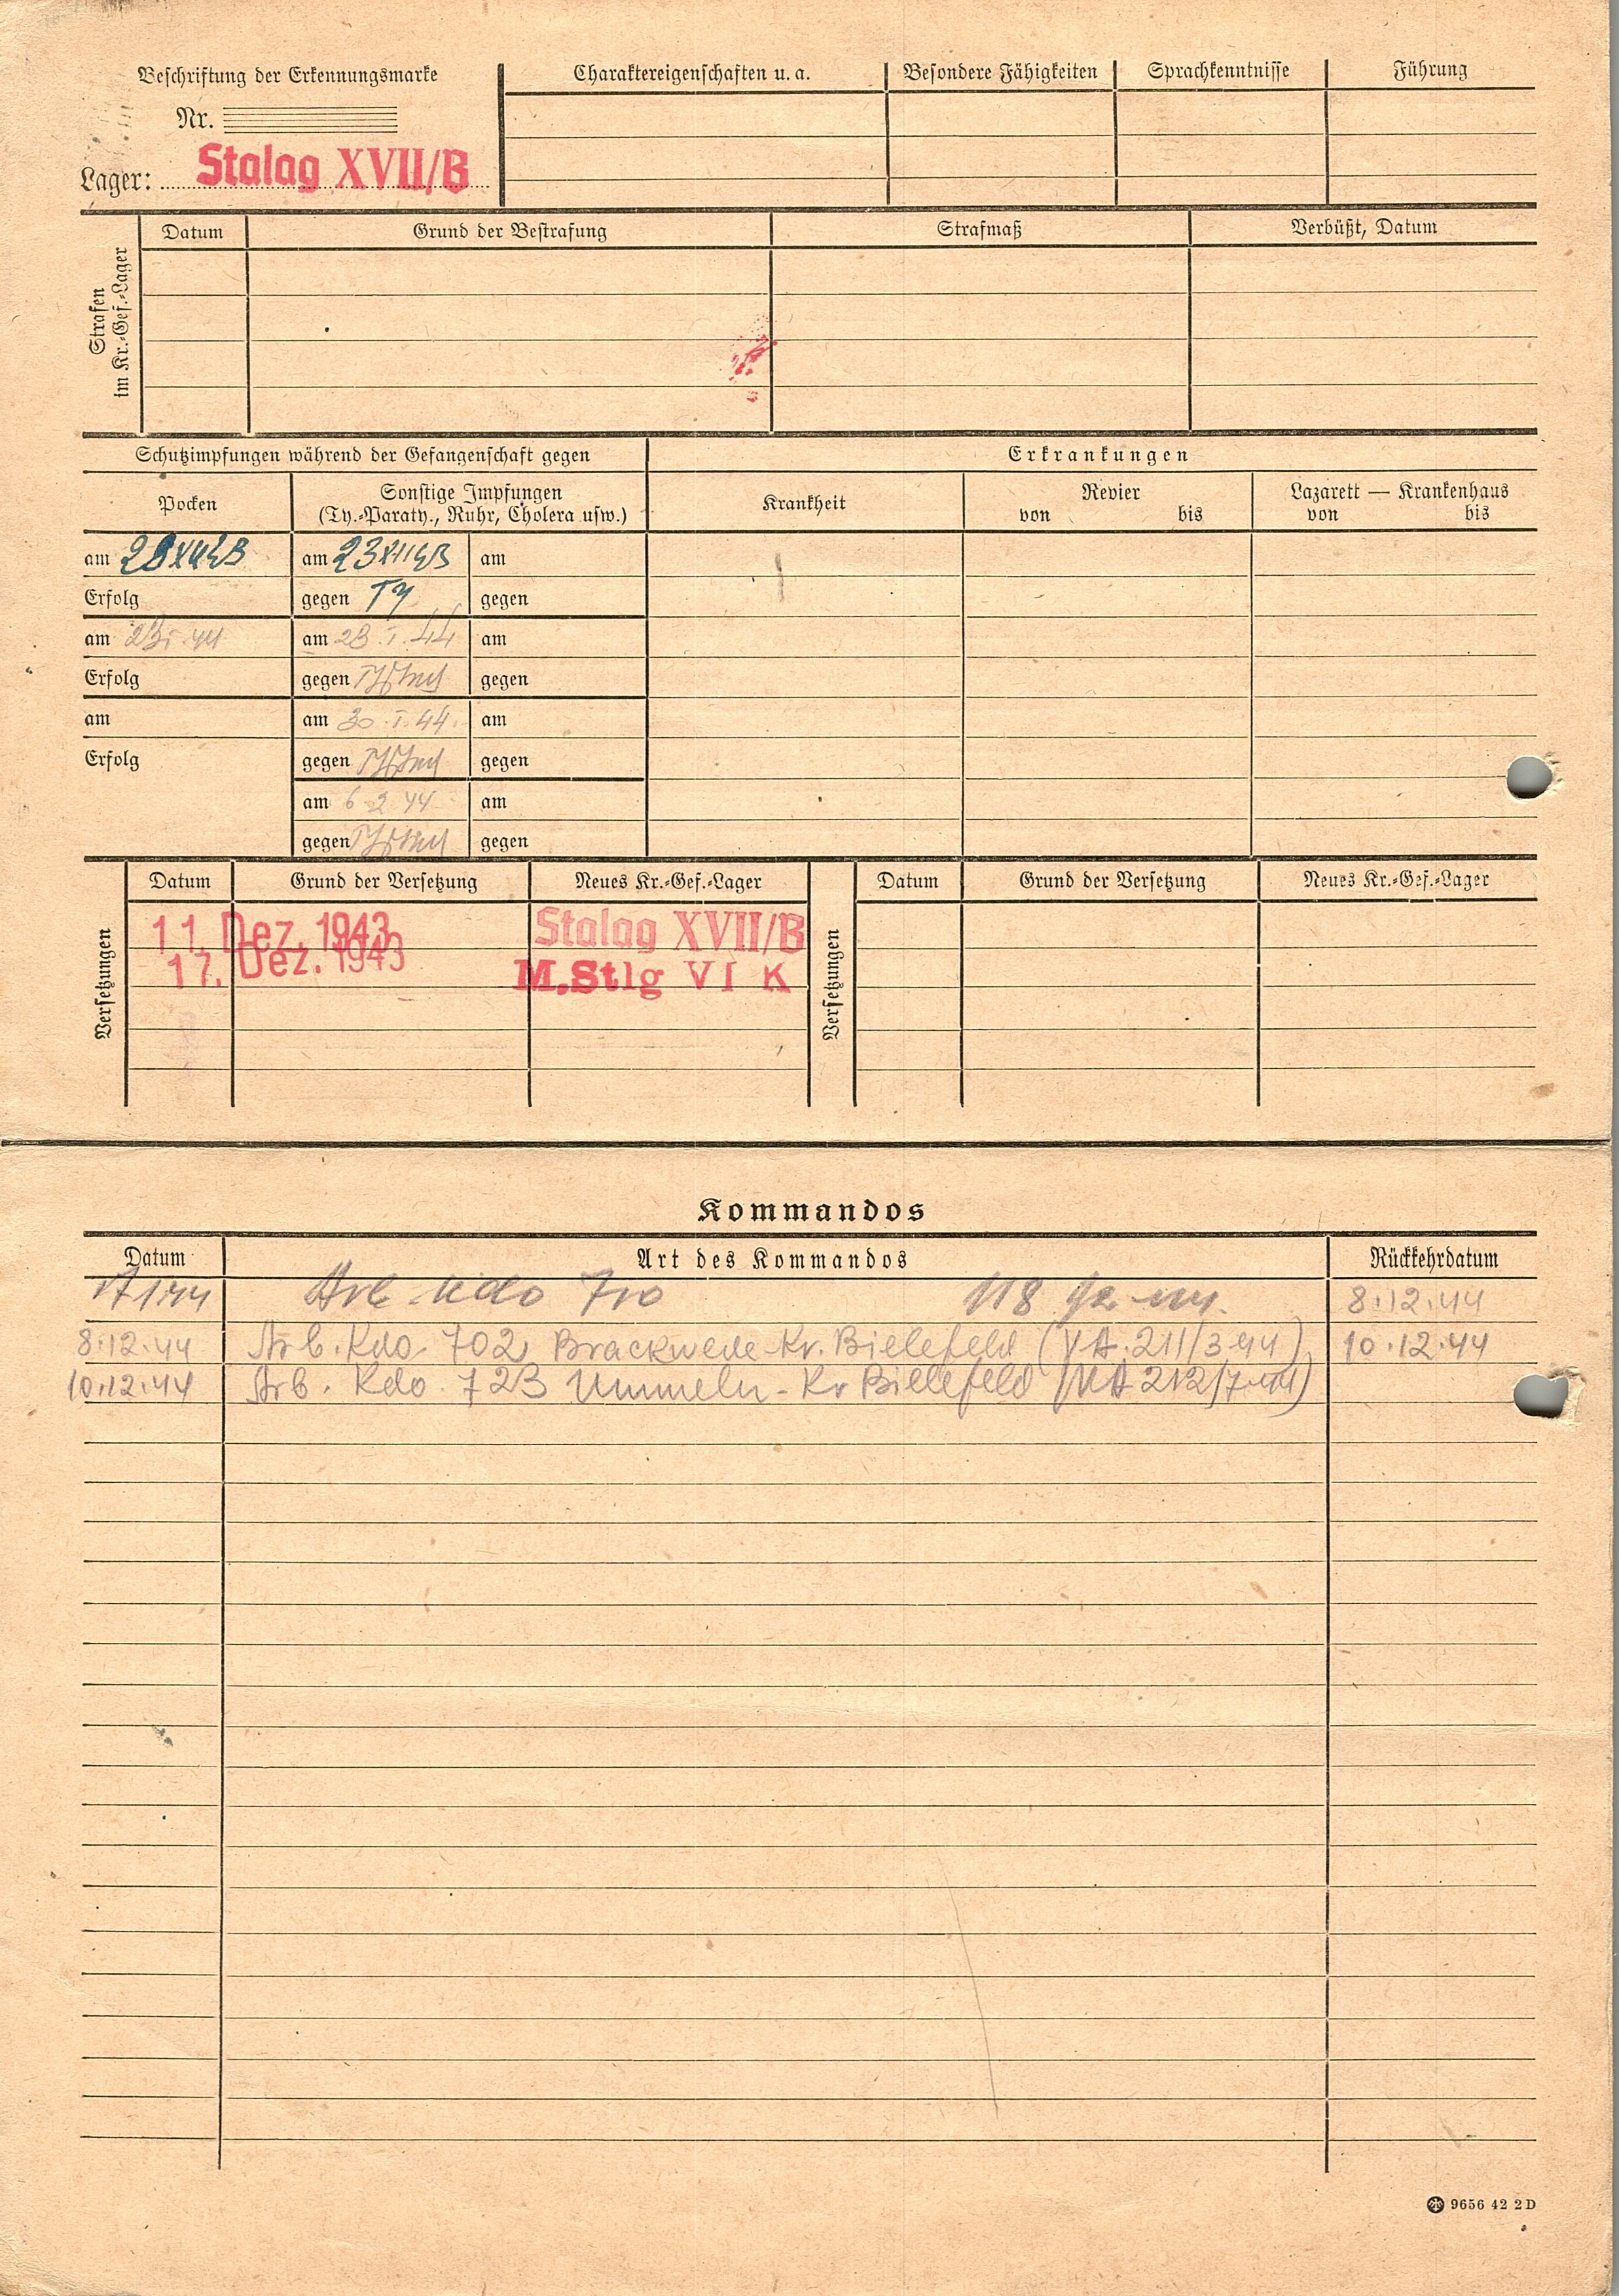 Beschriftung der Erkennungsmarke
Nr.
Lager: Stalag XVII/B
Charaktereigenschaften u. a. Besondere Fähigkeiten Sprachkenntnisse Führung
Strafen
im Kr.-Gef.-Lager
Datum Grund der Bestrafung Strafmaß Verbüßt, Datum
Schutzimpfungen während der Gefangenschaft gegen Erkrankungen
Pocken
Sonstige Impfungen
(Ty.-Paraty., Ruhr, Cholera usw.)
Krankheit
Revier
von bis
Lazarett — Krankenhaus
von bis
am am 23 XII 43 am
Erfolg gegen Ty gegen
am am 23.I.44 am
Erfolg gegen gegen
am am 30.I.44. am
Erfolg gegen gegen
am 6.2.44 am
gegen gegen
Versetzungen
Datum Grund der Versetzung Neues Kr.-Gef.-Lager
11. Dez. 1943 Stalag XVII/B
17. Dez. 1943 M.Stlg VI K
Versetzungen
Datum Grund der Versetzung Neues Kr.-Gef.-Lager
Kommandos
Datum Art des Kommandos Rückkehrdatum
Arb. Kdo 710 118 8.12.44
8.12.44 Arb. Kdo. 702 Brackwede-Kr. Bielefeld (VA.211/3 44) 10.12.44
10.12.44 Arb. Kdo. 723 Ummeln - Kr Bielefeld (VA 212/7 44)
9656 42 2 D